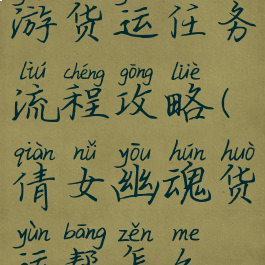 游货运任务
liú chéng gōng lüè
流程攻略(
qiàn nǚ yōu hún huò
倩女幽魂货
yùn bāng zěn me
运帮怎么